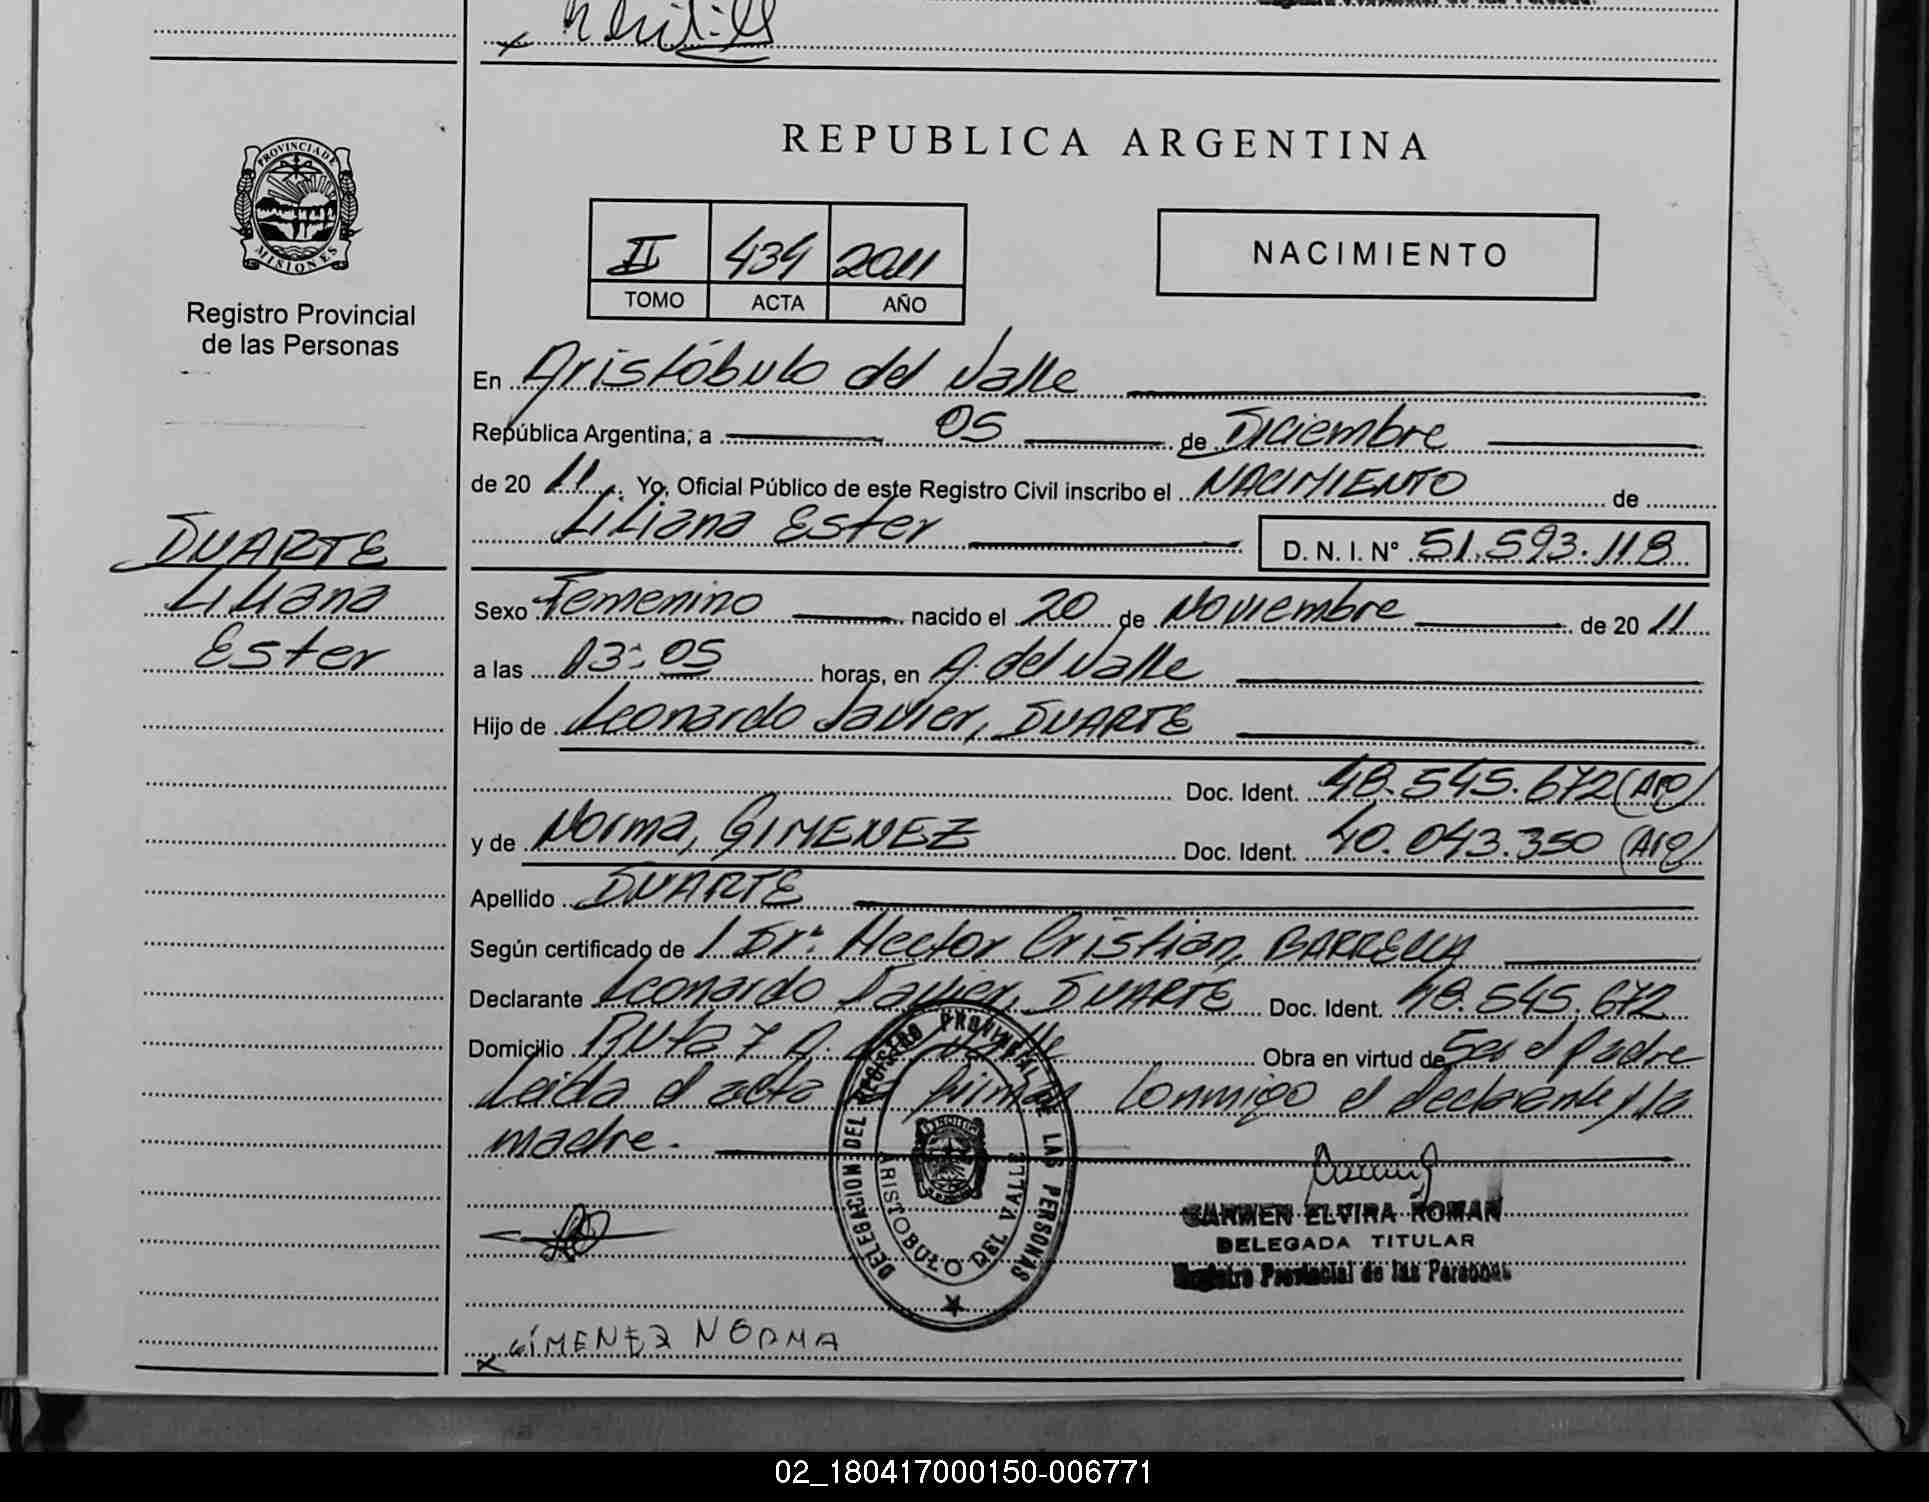 REPUBLICA ARGENTINA
PROVINCIA DE
MISIONES
Registro Provincial
de las Personas
II 434 2011
TOMO ACTA AÑO
NACIMIENTO
En Aristóbulo del Valle
República Argentina, a 05 de Diciembre
de 20 11. Yo, Oficial Público de este Registro Civil inscribo el NACIMIENTO de
Liliana Ester D. N. I. N° 51.593.118
DUARTE
Liliana
Ester
Sexo Femenino nacido el 20 de Noviembre de 20 11
a las 03:05 horas, en A. del Valle
Hijo de Leonardo Javier, DUARTE
Doc. Ident. 48.545.672 (Arg)
y de Norma, GIMENEZ Doc. Ident. 40.043.350 (Arg)
Apellido DUARTE
Según certificado de 1. Dr: Hector Cristian,
Declarante Leonardo Javier, DUARTE Doc. Ident. 48.545.672
Domicilio Ruta 7 A. del Valle Obra en virtud de Ser el padre
Leida el acta la firman conmigo el declarante y la
madre.
DELEGACION DEL REGISTRO PROVINCIAL DE LAS PERSONAS
ARISTOBULO DEL VALLE
CARMEN ELVIRA ROMAN
DELEGADA TITULAR
Registro Provincial de las Personas
x GIMENEZ NORMA
02_180417000150-006771